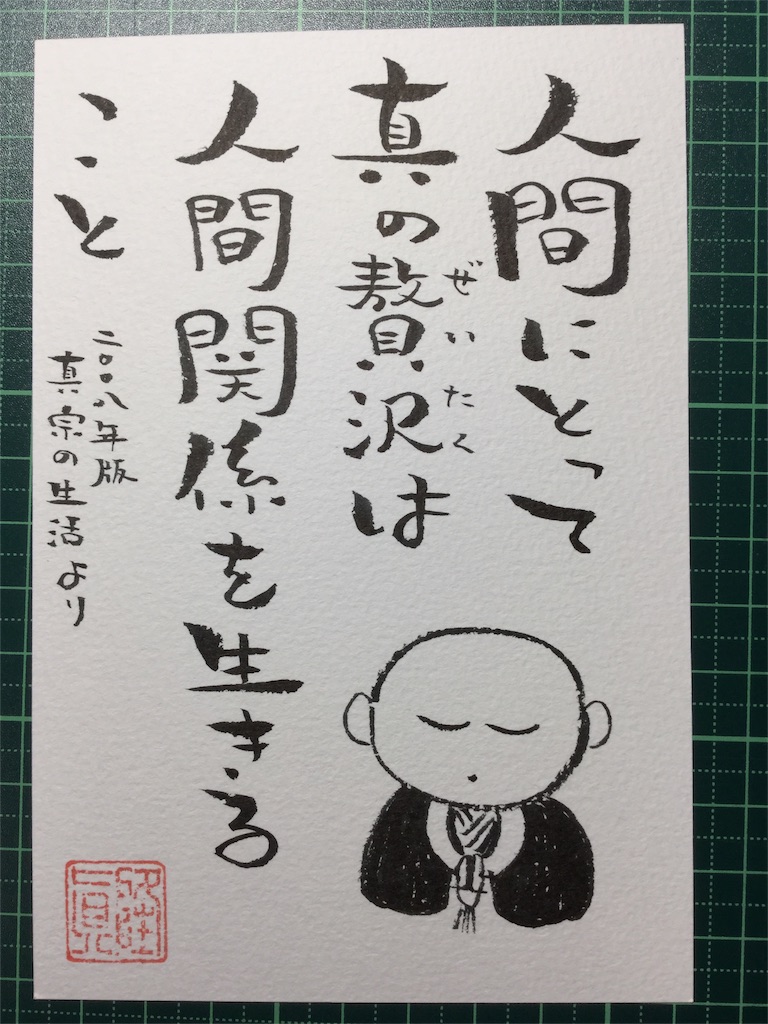 人間にとって
真の贅沢は
ぜいたく
人間関係を生きる
こと
二〇〇八年版
真宗の生活より